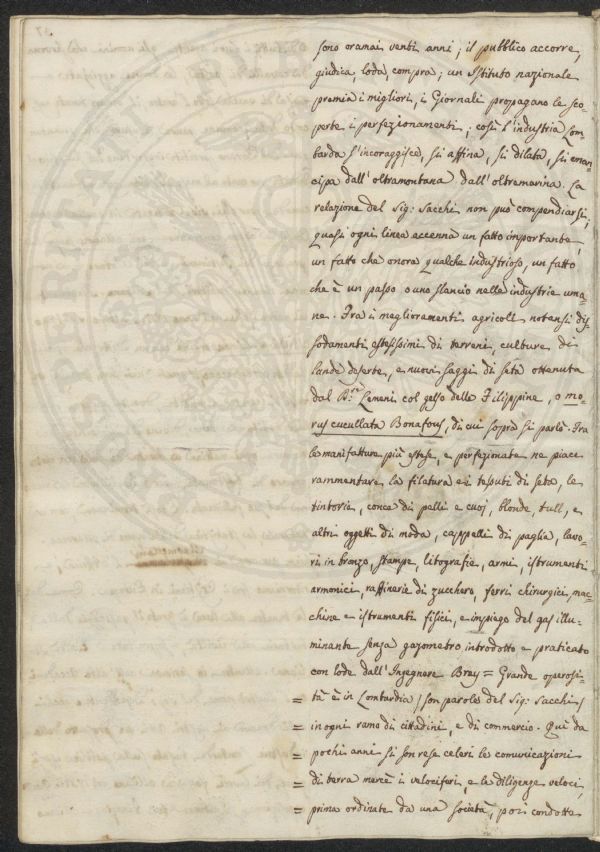 sono oramai venti anni; il pubblico accorre,
giudica, loda, compra; un Istituto nazionale
premia i migliori, i Giornali propagano le sco-
perte i perfezionamenti; così l'industria Lom-
barda s'incoraggisce, si affina, si dilata, si eman-
cipa dall'oltramontana dall'oltremarina. La
relazione del Sig: Sacchi non può compendiarsi;
quasi ogni linea accenna un fatto importante,
un fatto che onora qualche industrioso, un fatto
che è un passo o uno slancio nelle industrie uma-
ne. Fra i miglioramenti agricoli notansi dis-
sodamenti estesissimi di terreni, culture di
lande deserte, e nuovi saggi di seta ottenuta
dal col gelso delle Filippine, o mo-
rus cucullata Bonafous, di cui sopra si parlò. Fra
le manifatture più estese, e perfezionate ne piace
rammentare, la filatura e i tessuti di seta, le
tintorie, concia di pelli e cuoj, blonde, tull, e
altri oggetti di moda, cappelli di paglia, lavo-
ri in bronzo, stampe, litografie, armi, istrumenti
armonici, raffinerie di zucchero, ferri chirurgici, mac-
chine e istrumenti fisici, e impiego del gas illu-
minante senza gazometro introdotto e praticato
con lode dall'Ingegnere Brey = Grande operosi-
= tà è in Lombardia / son parole del Sig: Sacchi /
= in ogni ramo di cittadini, e di commercio. Quì da
= pochi anni si son rese celeri le comunicazioni
= di terra mercè i velociferi, e le diligenze veloci,
= prima ordinate da una società, poi condotte